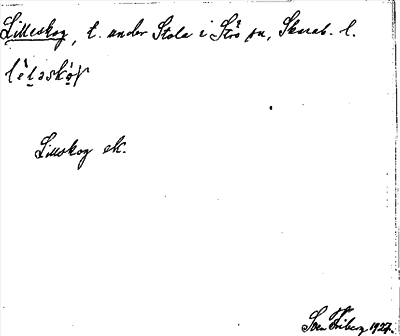 Lilleskog, t. under Stola i Strö sn, Skarab. l.
Lillskog ek.
Sven Friberg 1927.